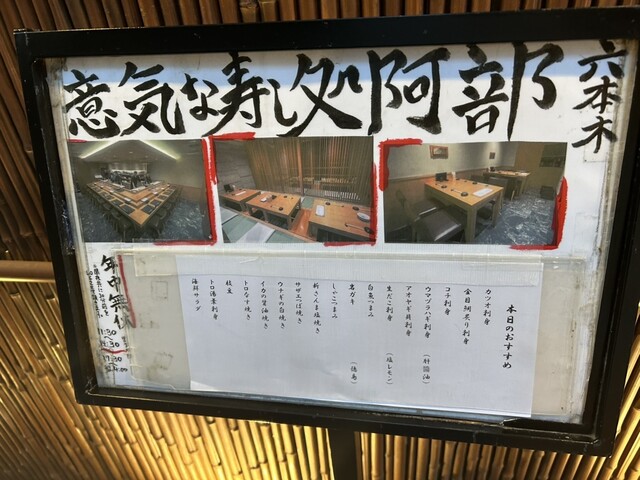 意気な寿し処阿部
六本木
本日のおすすめ
カツオ刺身
金目鯛炙り刺身
コチ刺身
ウマヅラハギ刺身（肝醤油）
アオヤギ貝刺身
生だこ刺身（塩レモン）
白魚つまみ
岩ガキ（徳島）
しゃこつまみ
新さんま塩焼き
サザエつぼ焼き
ウナギの白焼き
イカの葉油焼き
トロなす焼き
枝豆
トロ湯葉刺身
海鮮サラダ
年中無休
11:30
17:30